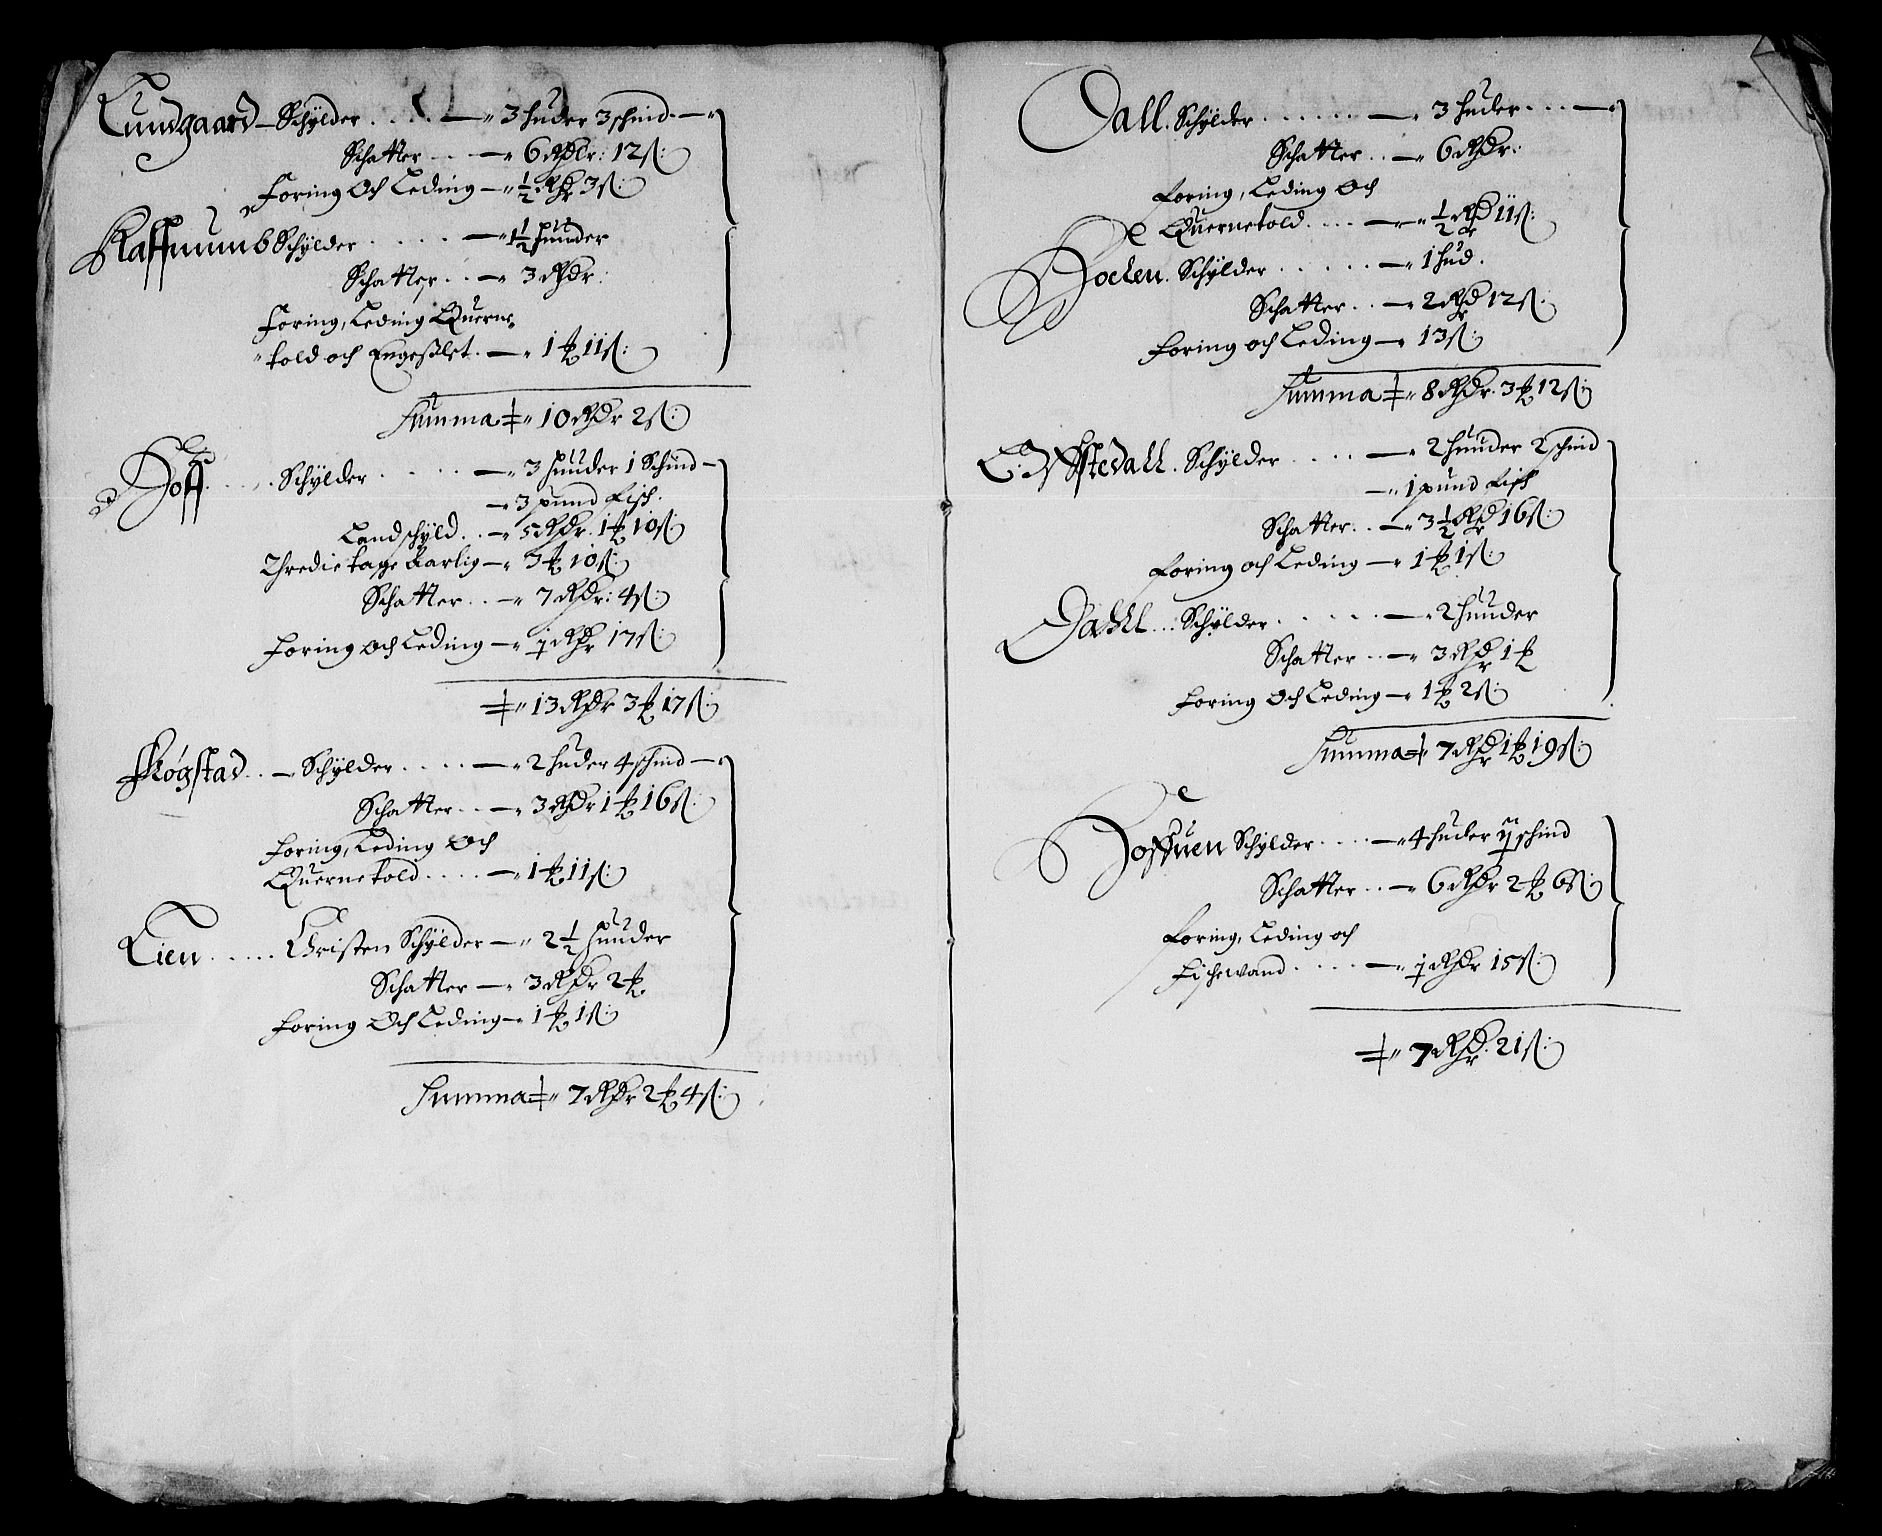 Lundgaard – Schÿlder . . . . . — " 3 huder 3 schind. — "
Schatter . . . — " 6 Rdlr: 12 ß:
Foring Och Leding — " ½ Rdr 3 ß:
Raffnumb Schÿlder . . . . . — " 1½ huuder
Schatter . . — " 3 Rdr:
Foring, Leding Querne
" told och Engeßlet . — " 1 ℔ 11 ß:
Summa ╪ " 10 Rdr 2 ß:
Hoff . . . . Schÿlder . . . . . — " 3 huuder 1 Schind –
— " 3 pund Fisch.
Landschÿld . . — " 5 Rdr. 1 ℔ 10 ß:
Thredie tage Aarlig — " 3 ℔ 10 ß:
Schatter . . — " 7 Rdr: 4 ß:
Foring och Leding — " ½ Rdr 17 ß:
╪ " 13 Rdr 3 ℔ 17 ß:
Skøgstad . . — Schÿlder . . . . — " 2 huder 4 schind — "
Schatter . . — " 3 Rdr 1 ℔ 16 ß:
Foring, Leding Och
Quernetold . . . . — " 1 ℔ 11 ß:
Lien . . . . . Christen Schÿlder — " 2½ huuder
Schatter — " 3 Rdr 2 ℔.
Foring Och Leding — " 1 ℔ 1 ß:
Summa ╪ " 7 Rdr 2 ℔ 4 ß:
Dall . Schÿlder . . . . . . — " 3 huder . . . — "
Schatter . . — " 6 Rdr:
Foring, Leding Och
Quernetold . . . . — " ½ Rdr 11 ß:
Schÿlder . . . . . — " 1 hud .
Schatter . . — " 2 Rdr 12 ß:
Foring och Leding — " 13 ß:
Summa ╪ " 8 Rdr. 3 ℔ 12 ß:
Schÿlder . . . . — " 2 huuder 2 schind
— " 1 pund Fisch
Schatter . . — " 3½ Rdr 16 ß:
Foring och Leding — " 1 ℔ 1 ß:
Dahl . . . Schÿlder . . . . . — " 2 huuder
Schatter . . — " 3 Rdr 1 ℔
Foring Och Leding — " 1 ℔ 2 ß:
Summa ╪ " 7 Rdr 1 ℔ 19 ß:
Schÿlder . . . . — " 4 huder ½ schind
Schatter . . — " 6 Rdr 2 ℔ 6 ß:
Foring, Leding och
Fischewand . . . . — " ½ Rdr 15 ß:
╪ " 7 Rdr: 21 ß: